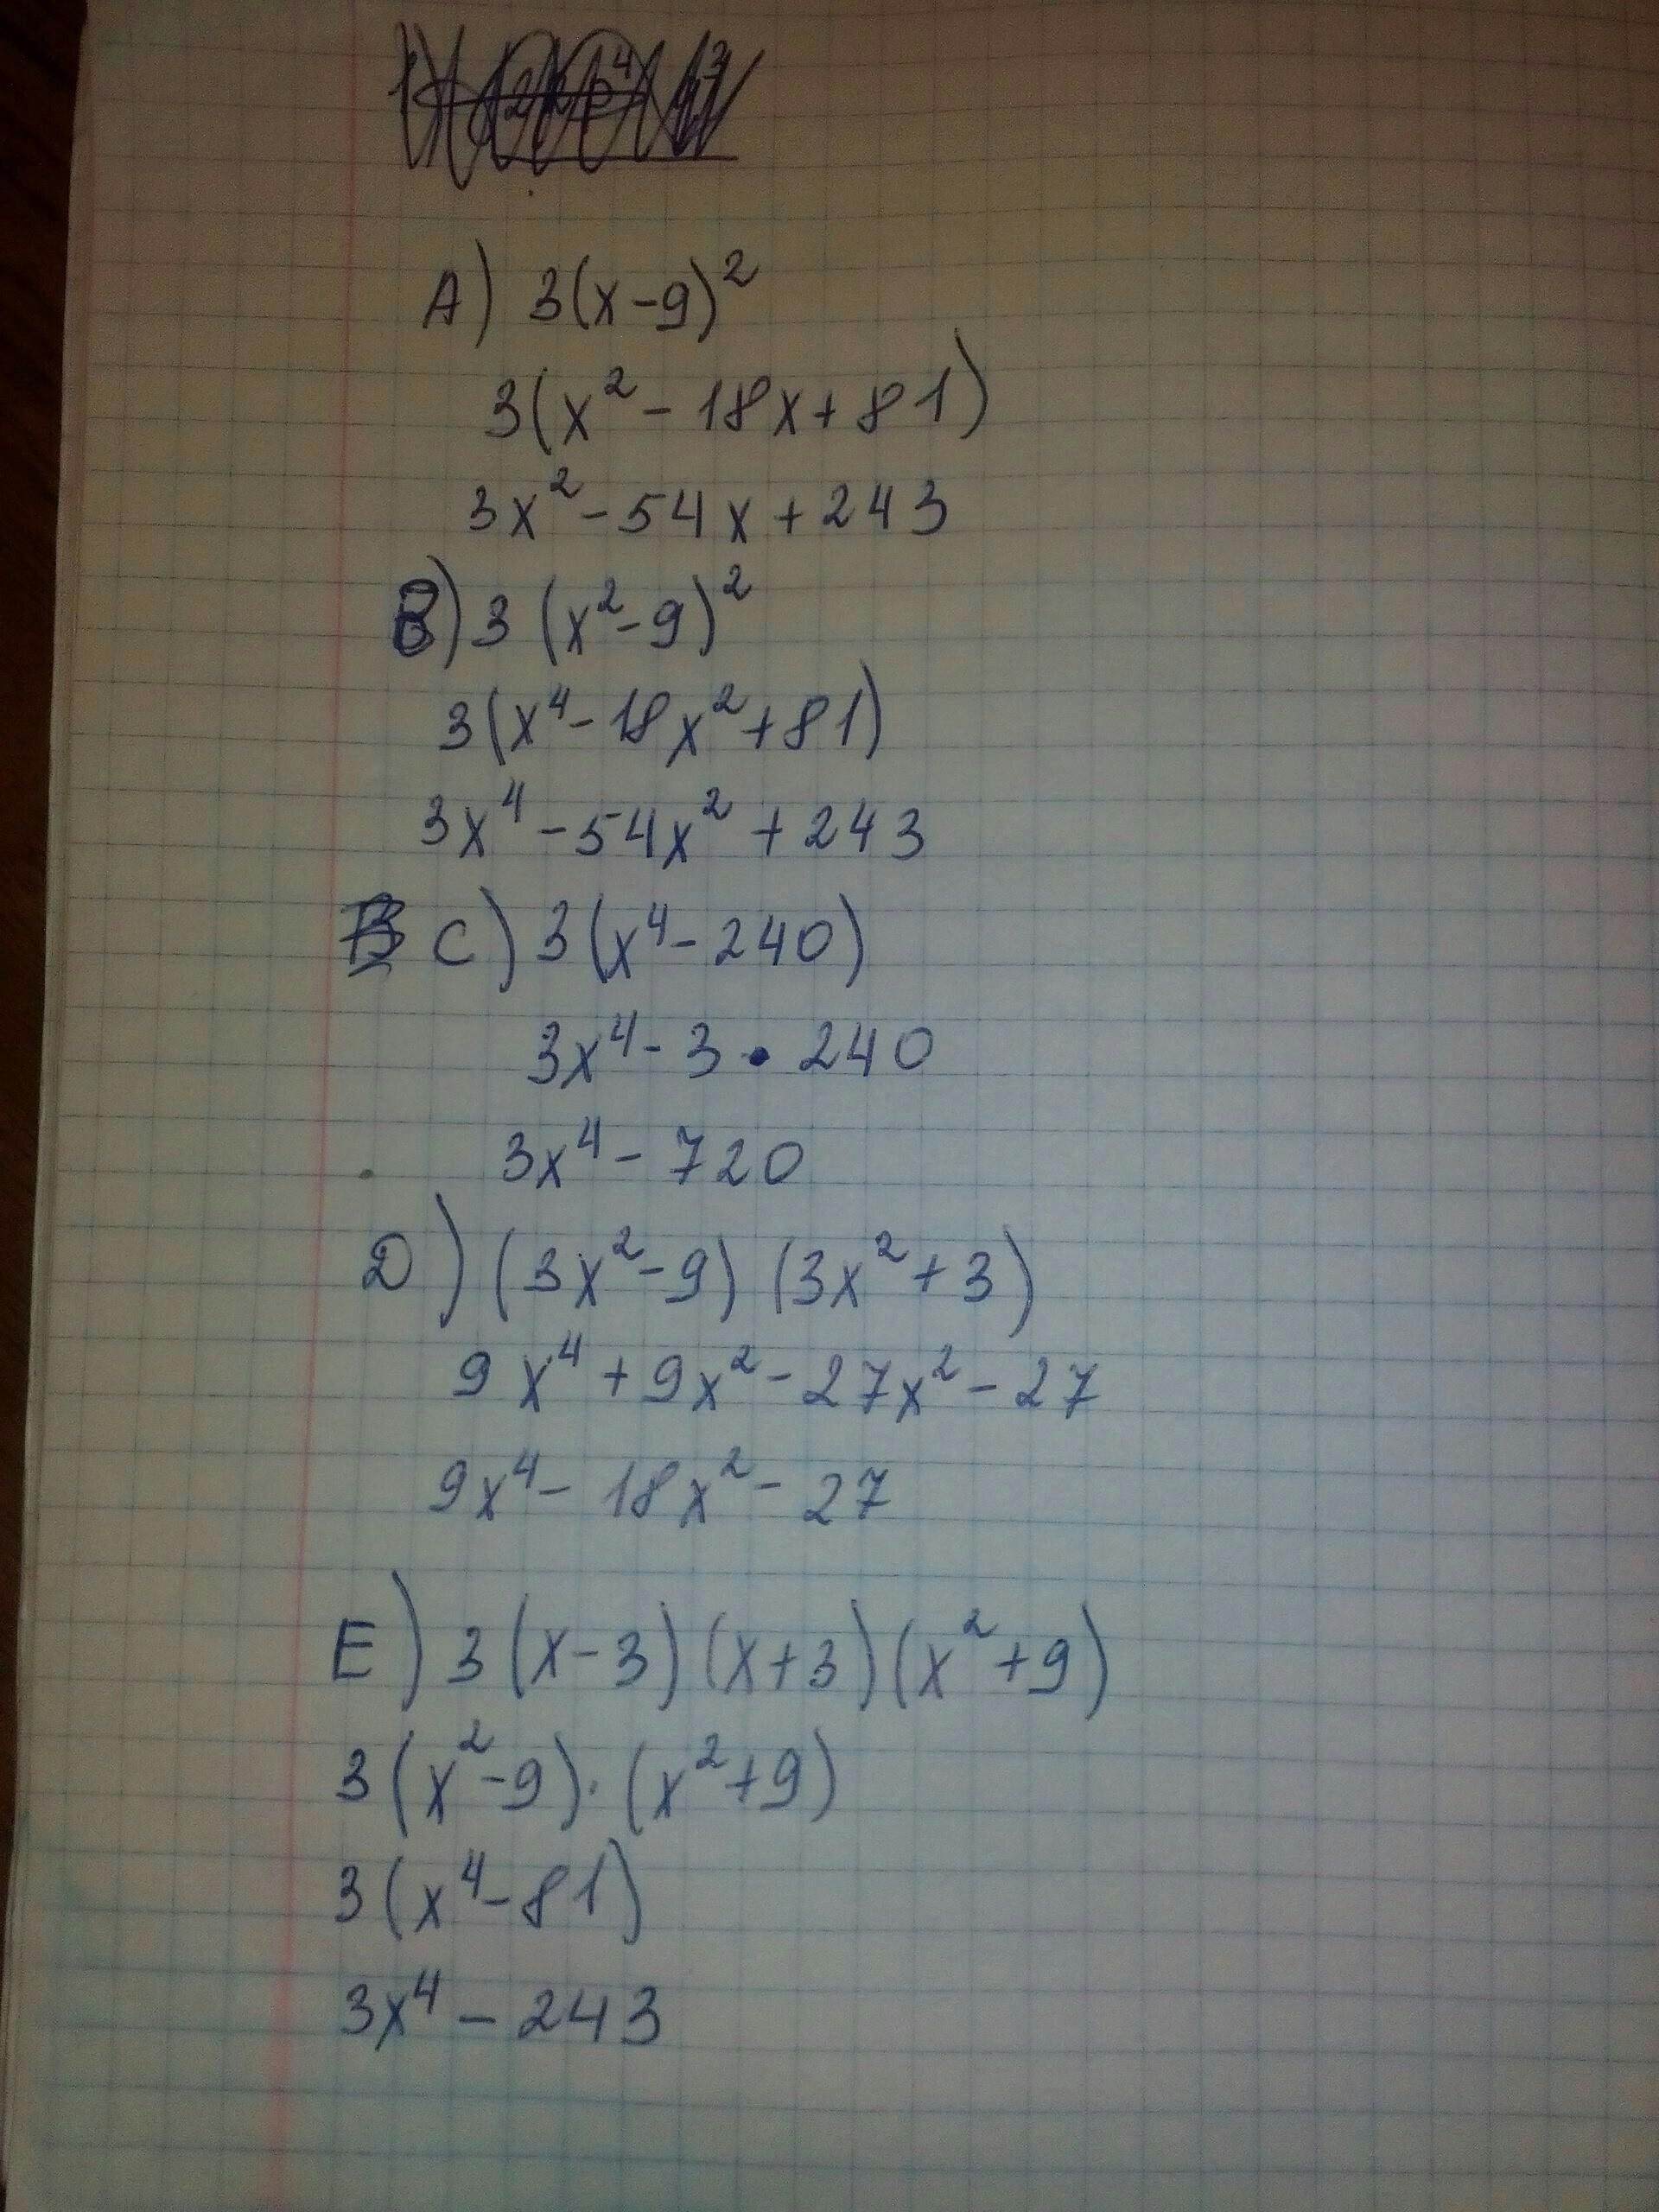 A) 3(x-9)²
3(x² - 18x + 81)
3x² - 54x + 243
B) 3 (x² - 9)²
3(x⁴ - 18x² + 81)
3x⁴ - 54x² + 243
C) 3(x⁴ - 240)
3x⁴ - 3 • 240
3x⁴ - 720
D) (3x² - 9) (3x² + 3)
9x⁴ + 9x² - 27x² - 27
9x⁴ - 18x² - 27
E) 3(x-3)(x+3)(x²+9)
3(x² - 9) · (x² + 9)
3(x⁴ - 81)
3x⁴ - 243